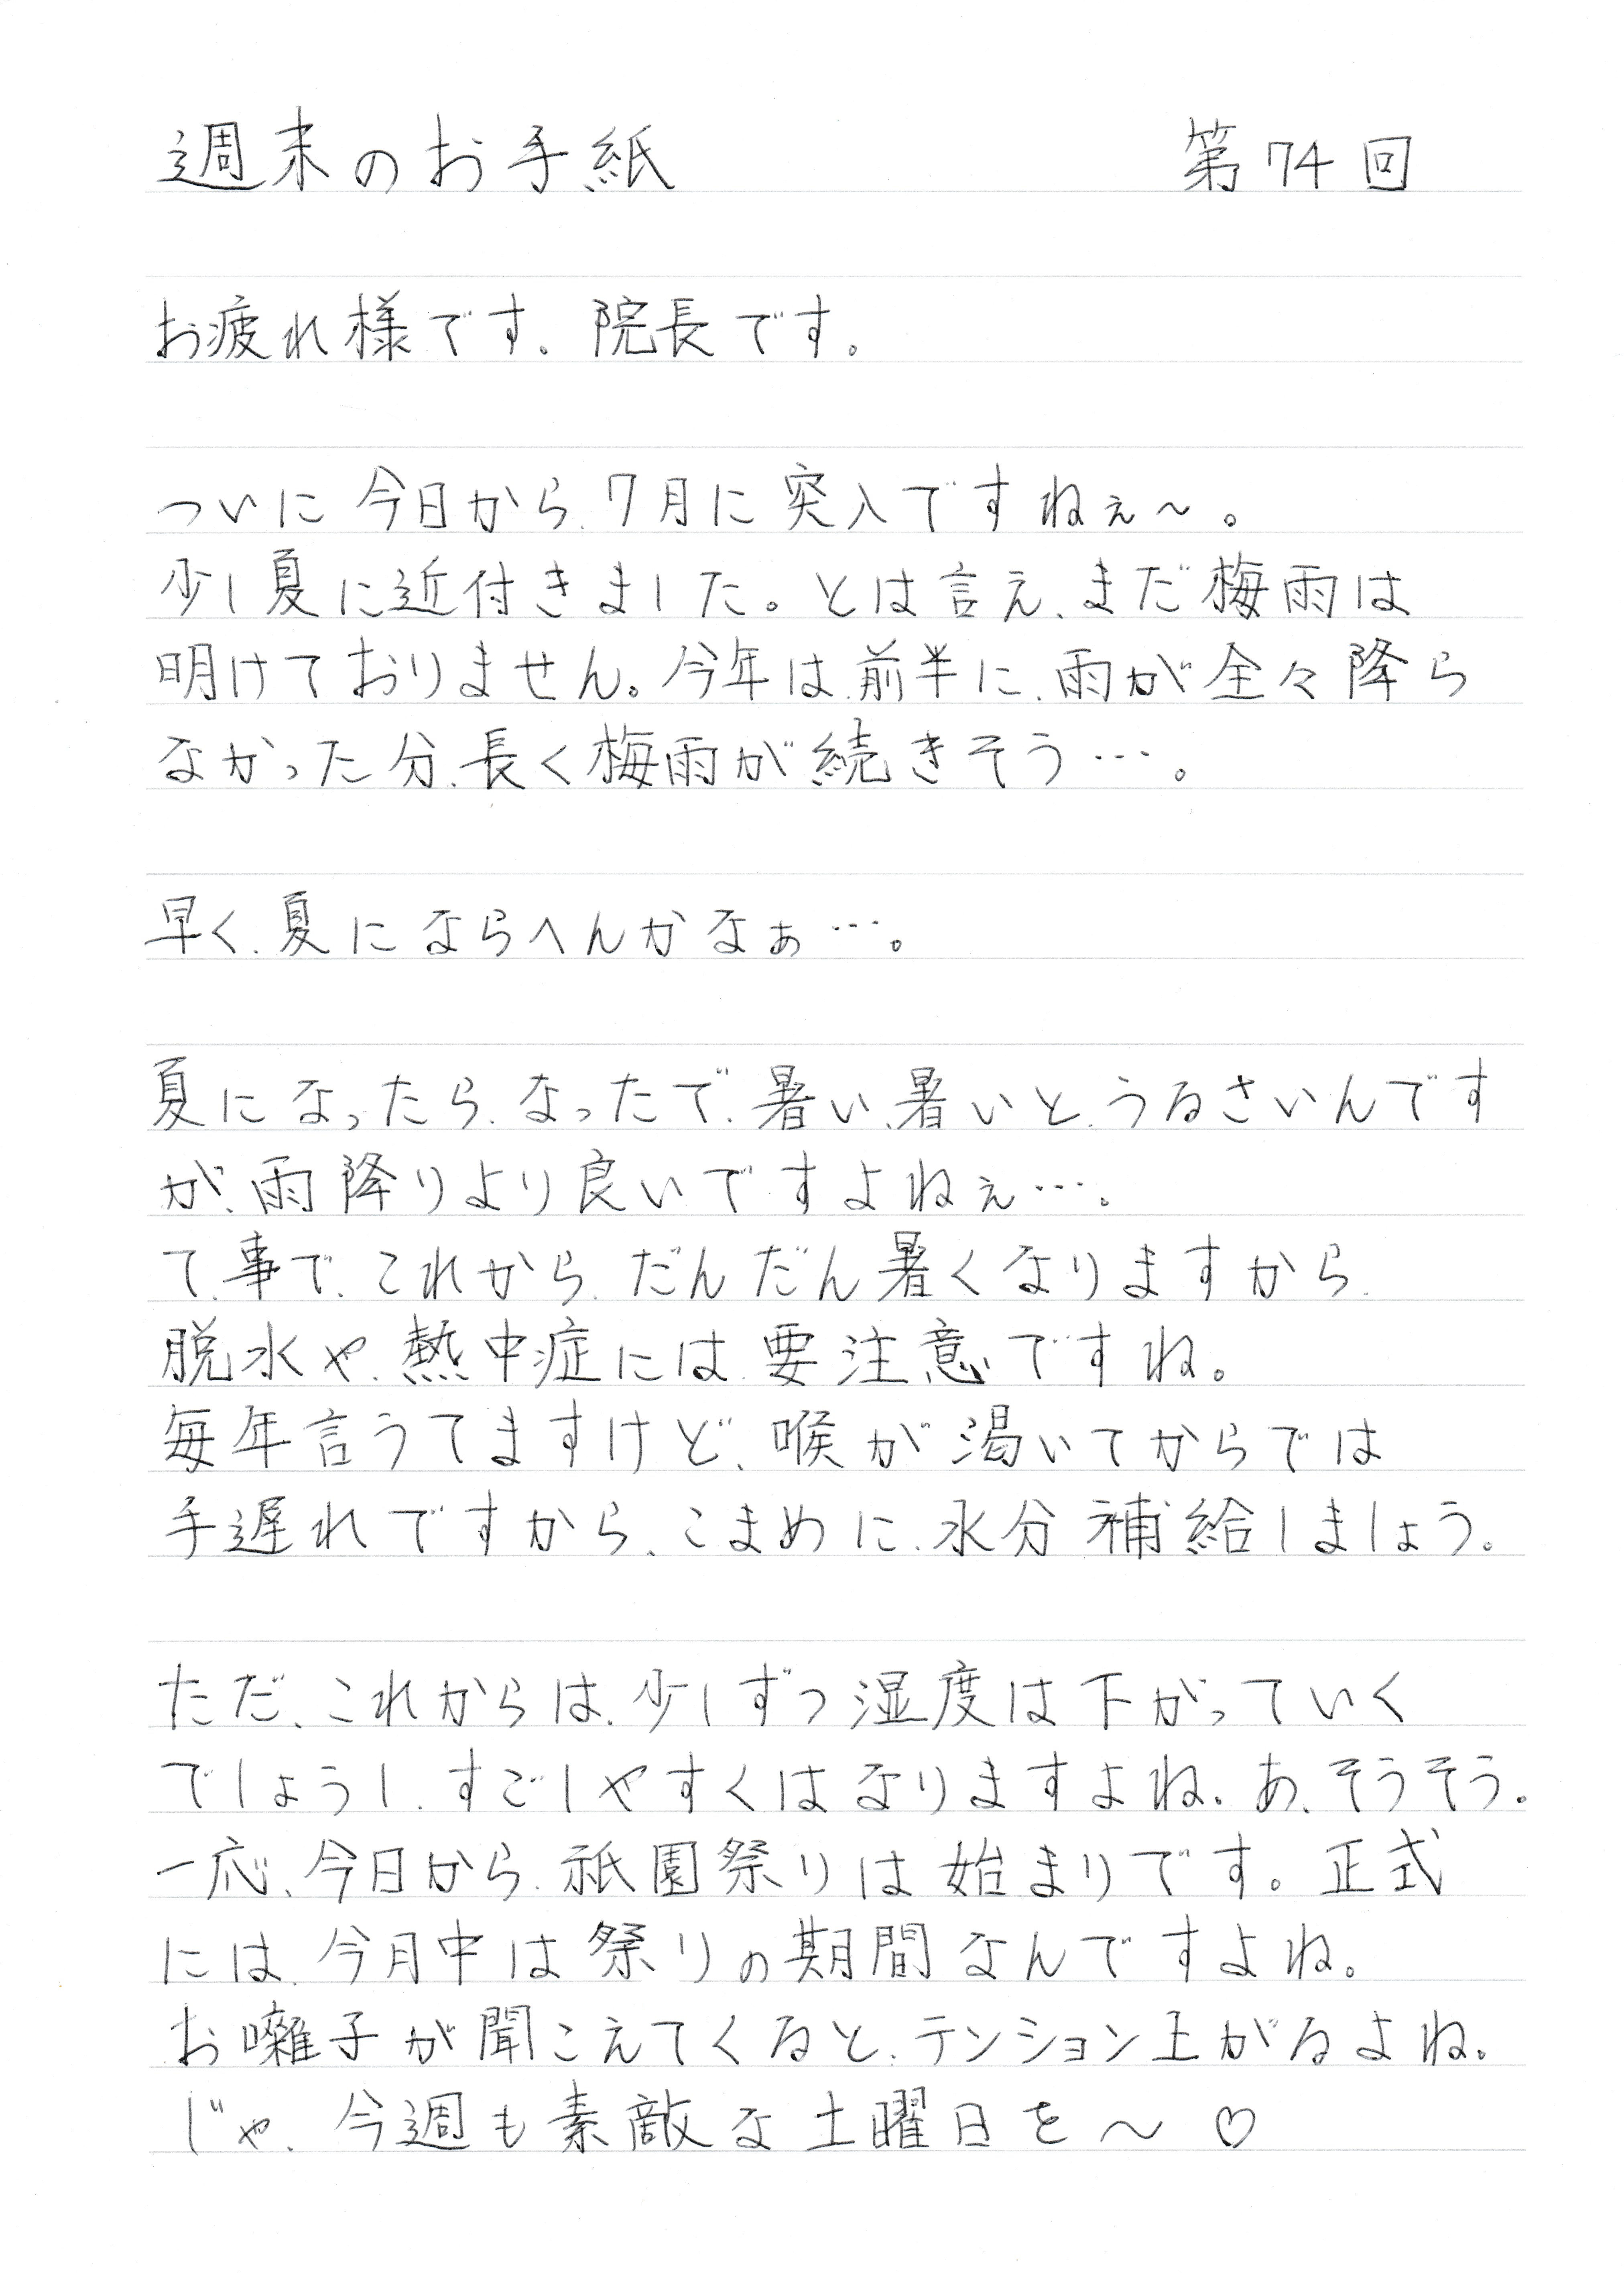 週末のお手紙 第74回
お疲れ様です、院長です。
ついに今日から、7月に突入ですねぇ〜。
少し夏に近付きました。とは言え、まだ梅雨は
明けておりません。今年は、前半に、雨が全々降ら
なかった分、長く梅雨が続きそう…。
早く、夏にならへんかなぁ…。
夏になったら、なったで、暑い、暑いと、うるさいんです
が、雨降りより良いですよねぇ…。
て、事で、これから、だんだん暑くなりますから、
脱水や、熱中症には、要注意ですね。
毎年言うてますけど、喉が渇いてからでは
手遅れですから、こまめに、水分補給しましょう。
ただ、これからは、少しずつ湿度は下がっていく
でしょうし、すごしやすくはなりますよね。あ、そうそう。
一応、今日から、祇園祭りは始まりです。正式
には、今月中は祭りの期間なんですよね。
お囃子が聞こえてくると、テンション上がるよね。
じゃ、今週も素敵な土曜日を〜♡